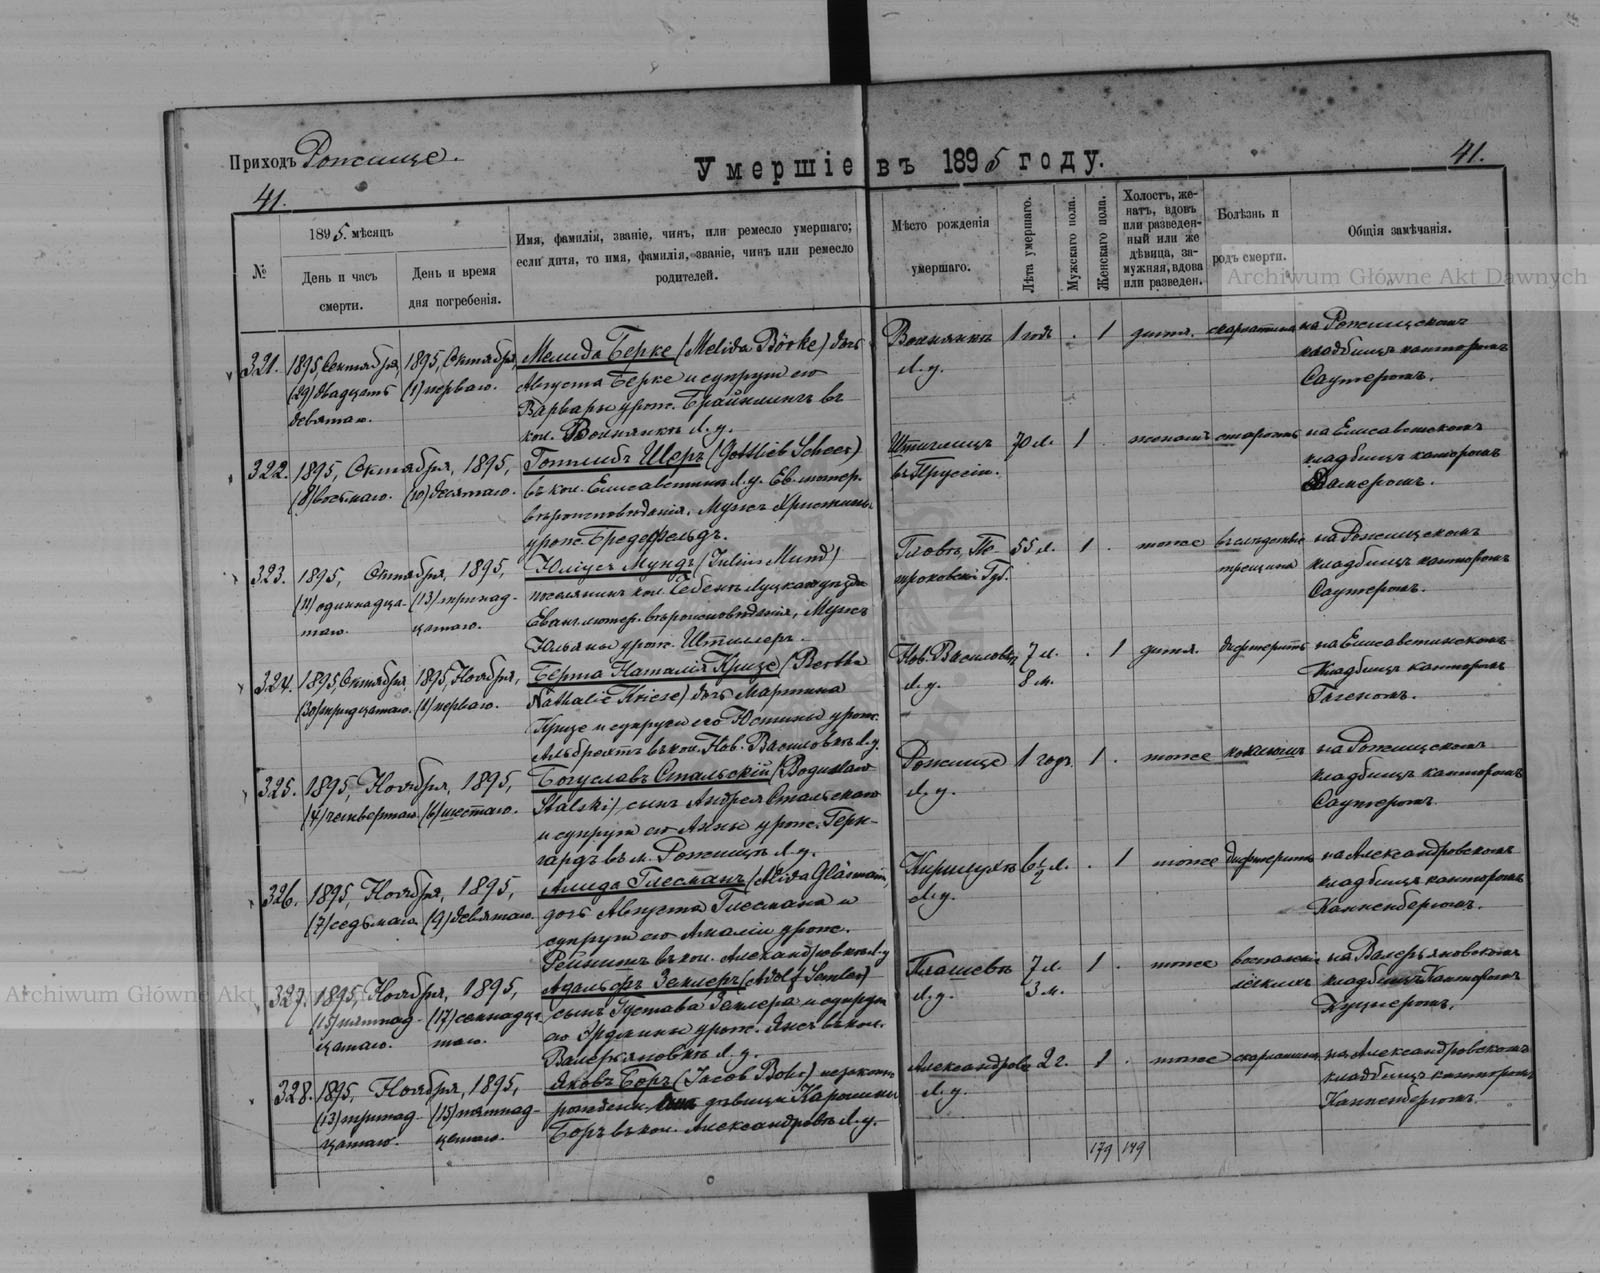 Приходъ Рожище.
Умершіе въ 1895 году.
41.
41.
№
1895. мѣсяцъ
День и часъ смерти.
День и время дня погребенія.
Имя, фамилія, званіе, чинъ, или ремесло умершаго;
если дитя, то имя, фамилія, званіе, чинъ или ремесло
родителей.
Мѣсто рожденія
умершаго.
Лѣта умершаго.
Мужскаго пола.
Женскаго пола.
Холостъ, же-
натъ, вдовъ
или разведен-
ный или же
дѣвица, за-
мужняя, вдова
или разведен.
Болѣзнь и
родъ смерти.
Общія замѣчанія.
Archiwum Główne Akt Dawnych
321. 1895, Сентября, 1895, Октября, Мелида Берке (Melida Börke) дочь
(29) двадцать (1) перваго. Августа Берке и супруги его
девятаго. Варвары урож. Брайклингъ въ
кол. Волнянкѣ Л. у.
Волнянкѣ 1 годъ . 1 дитя. скарлатина на Рожищскомъ
Л. у. кладбищѣ канторомъ
Саутеромъ.
322. 1895, Октября, 1895, Готлибъ Шеръ (Gottlieb Scheer)
(8) восьмаго. (10) десятаго. въ кол. Елисаветинъ Л. у. Ев. лютер.
вѣроисповѣданія. Мужъ Христины
урож. Бредефельдъ.
Штиглицъ 70 л. 1 . женатъ старость на Елисаветскомъ
въ Пруссіи. кладбищѣ канторомъ
323. 1895, Октября, 1895, Юліусъ Мундъ (Julius Mund)
(11) одиннадца- (13) тринад- поселянинъ кол. Лебенъ Луцкаго уѣзда
таго. цатаго. Еванг. лютер. вѣроисповѣданія, Мужъ
Юльяны урож. Штиллеръ.
55 л. 1 . тоже вслѣдствіе на Рожищскомъ
Губ. кладбищѣ канторомъ
Саутеромъ.
324. 1895, Октября 1895, Ноября, Берта Наталія Кризе (Bertha
(30) тридцатаго. (1) перваго. Nathalie Kriese) дочь Мартина
Кризе и супруги его Юстины урож.
Альбрехтъ въ кол. Нов. Василовкѣ Л. у.
Нов. Василовкѣ 7 л. . 1 дитя. дифтеритъ на Елисаветинскомъ
Л. у. 8 м. кладбищѣ канторомъ
325. 1895, Ноября, 1895, Богуславъ Стальскій (Boguslaw
(4) четвертаго (6) шестаго. Stalski), сынъ Андрея Стальскаго
и супруги его Анны урож. Герн-
гардъ въ м. Рожищѣ Л. у.
Рожище 1 годъ 1 . тоже коклюшъ на Рожищскомъ
Л. у. кладбищѣ канторомъ
Саутеромъ.
326. 1895, Ноября, 1895, Алида Глесманъ (Alida Gläsmann)
(7) седьмаго (9) девятаго. дочь Августа Глесмана и
супруги его Амаліи урож.
въ кол. Александровкѣ Л. у
6½ л. . 1 тоже дифтеритъ на Александровскомъ
Л. у. кладбищѣ канторомъ
Каппенбергомъ.
327. 1895, Ноября, 1895, Адольфъ Землеръ (Adolf Semler)
(15) пятнад- (17) семнадца- сынъ Густава Землера и супруги
цатаго. таго. его Эрдмины урож. Янсъ въ кол.
Валерьяновкѣ Л. у.
7 л. 1 . тоже воспаленіе на Валерьяновскомъ
Л. у. 3 м. легкихъ кладбищѣ Канторомъ
328. 1895, Ноября, 1895, Яковъ Боръ (Jacob Bohr) незаконно-
(13) тринад- (15) пятнад- рожденн. дѣвицы Каролины
цатаго. цатаго. Боръ въ кол. Александровкѣ Л. у.
Александровкѣ 2 г. 1 . тоже скарлатина на Александровскомъ
Л. у. кладбищѣ канторомъ
Каппенбергомъ.
179 149
Archiwum Główne Akt Dawnych